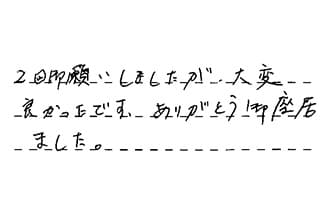 2回御願いしましたが、大変
良かったです。ありがとう御座居
ました。